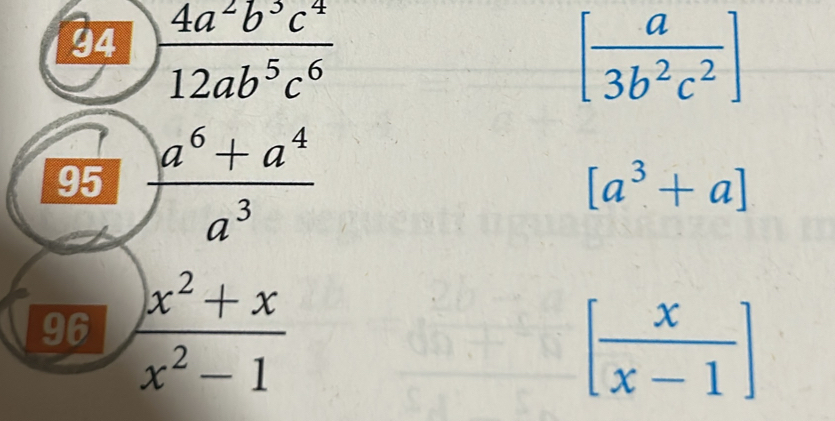 94 4a²b³c⁴ / 12ab⁵c⁶ [a / 3b²c²]
95 a⁶ + a⁴ / a³ [a³ + a]
96 x² + x / x² − 1 [x / x − 1]